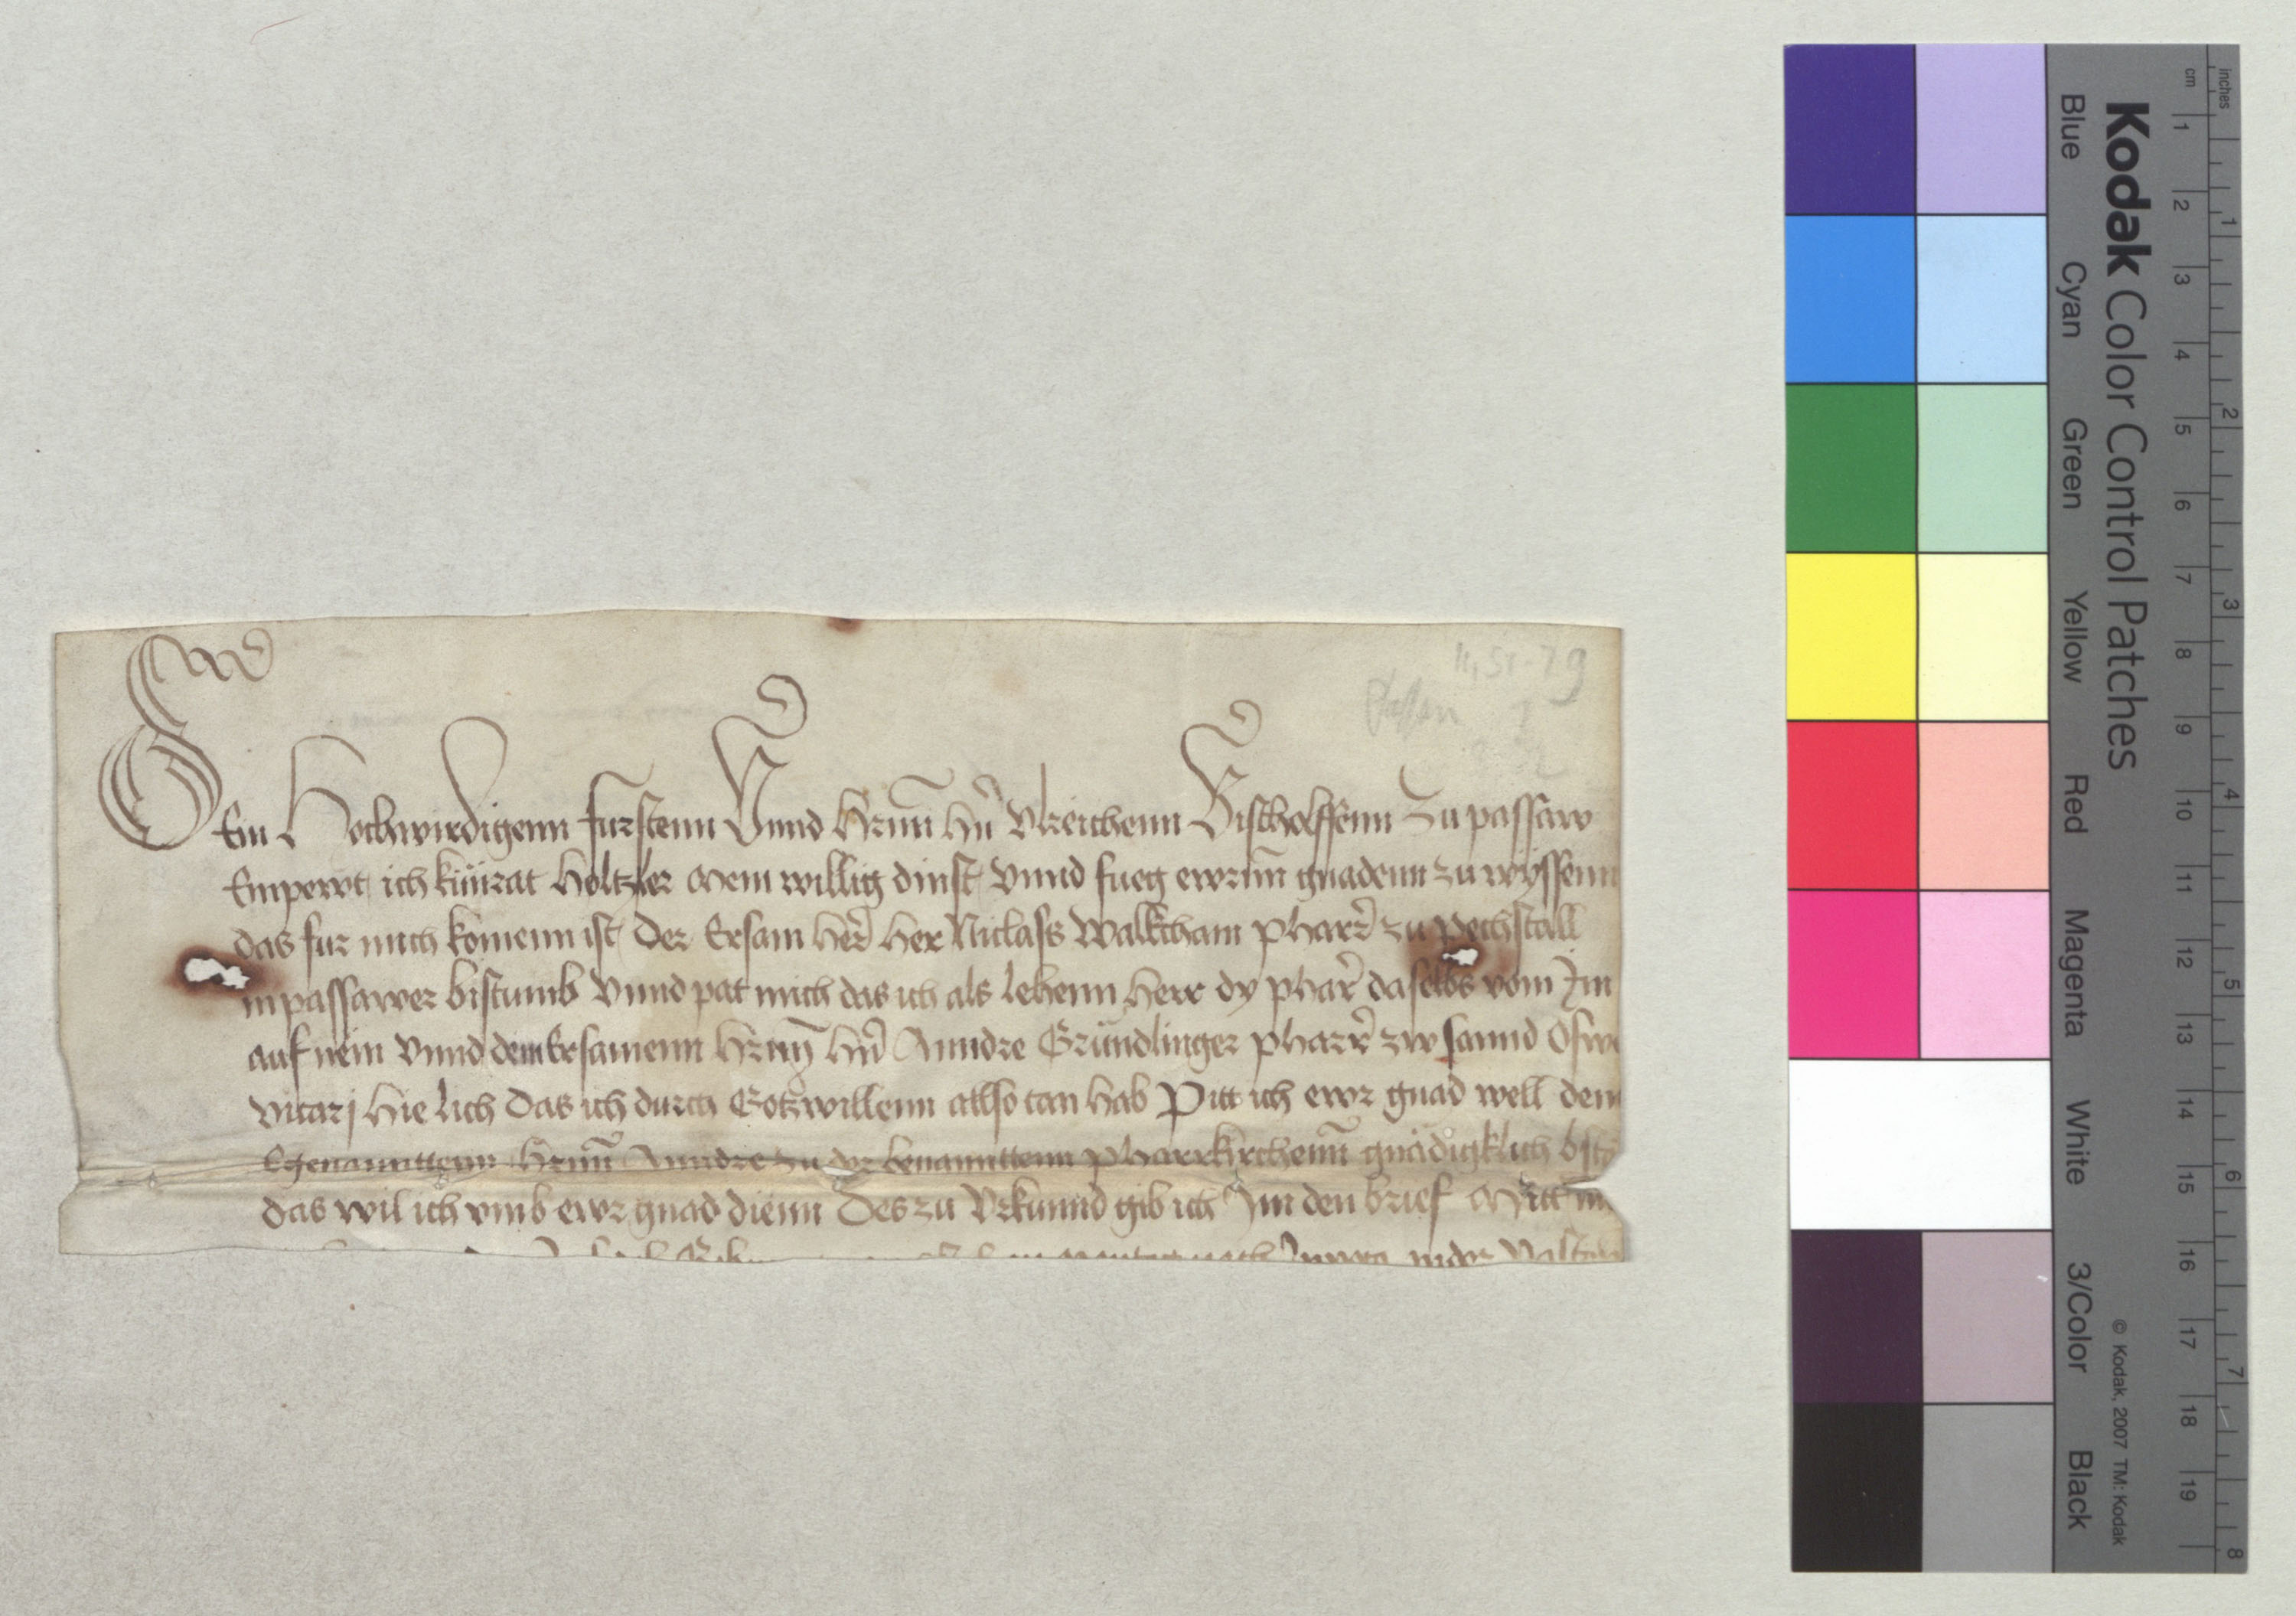 Dem Hochwirdigenn furstenn Vnnd Hernn hn Vlreichenn Bischolffenn Zu passaw
Empewt ich künrat Holtzler Mein willig dinst vnnd fueg ewrnn gnadenn zu wyssenn
das fur mich komenn ist Der Ersam Her Her Niclass Walkcham pharr zu pechstall
in passawer bistumb Vnnd pat mich das ich als lehenn Herr dy pharr daselbs vom Im
auf nem Vnnd dem Ersamenn Hernn hn Anndre Gründlinger pharrr zw sannd Osw
vicarj Hie lich Das ich durch Gotz willenn allso tan hab Pitt ich ewr gnad well dem
Egenannttenn Hernn Anndre zu der benannttenn pharrkirchenn gnädigklich bst
das wil ich vmb ewr gnad dienn Des zu Vrkunnd gib ich Im den brief Mitt m
mantag nach Inuoca in der Vasten
11,51-79
Kodak Color Control Patches
Blue Cyan Green Yellow Red Magenta White 3/Color Black
© Kodak, 2007 TM: Kodak
cm 1 2 3 4 5 6 7 8 9 10 11 12 13 14 15 16 17 18 19
inches 1 2 3 4 5 6 7 8